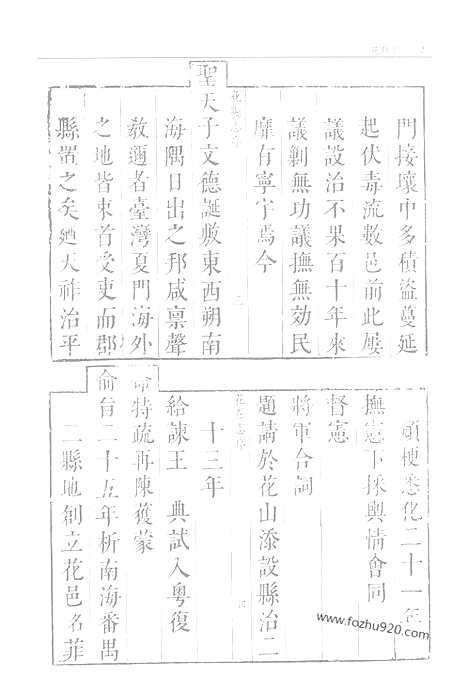 門接壤中多積盜蔓延
起伏毒流數邑前此屢
議設治不果百十年來
議剿無功議撫無効民
靡有寧宇焉今
聖天子文德誕敷東西朔南
海隅日出之邦咸稟聲
教邇者臺灣夏門海外
之地皆束首受吏而郡
縣置之矣廼天祚治平
頑梗悉化二十一年
撫憲下採輿情會同
督憲
將軍合詞
題請於花山添設縣治二
十三年
給諫王 典試入粵復
特疏再陳獲蒙
俞旨二十五年析南海番禺
二縣地創立花邑名菲
www.fozhu920.com